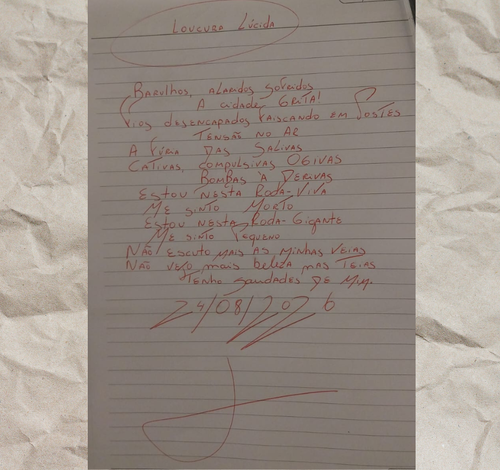 Loucura Lúcida
Barulhos, alaridos sórdidos
A cidade Grita!
Fios desencapados faiscando em Postes
Tensão no Ar
A Fúria das Salivas
Cativas, compulsivas Ogivas
Bombas à Derivas
Estou nesta Roda-Viva
Me sinto Morto
Estou nesta Roda-Gigante
Me sinto Pequeno
Não escuto mais as minhas veias
Não vejo mais beleza nas Teias
Tenho saudades de Mim.
24/08/2026